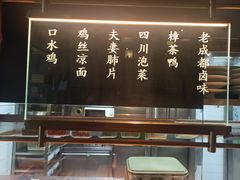 老成都卤味
樟茶鸭
四川泡菜
夫妻肺片
鸡丝凉面
口水鸡